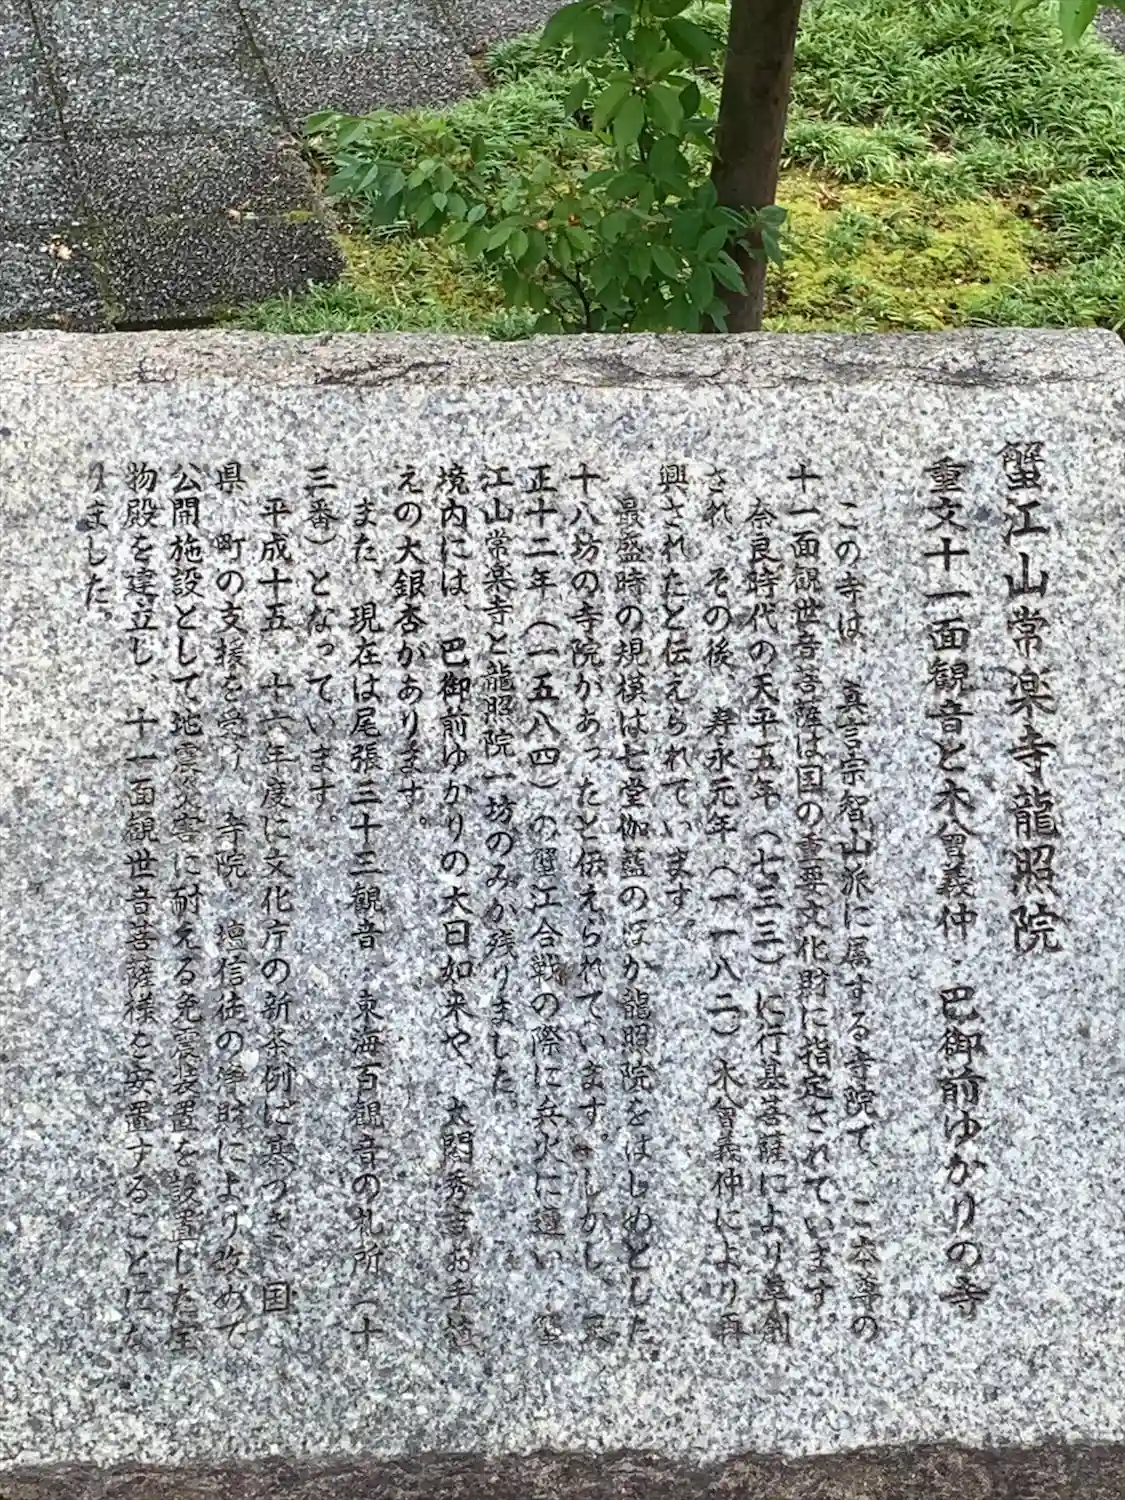 蟹江山常楽寺龍照院
重文十一面観音と木曾義仲・巴御前ゆかりの寺
この寺は、真言宗智山派に属する寺院で、ご本尊の
十一面観世音菩薩は国の重要文化財に指定されています。
奈良時代の天平五年(七三三)に行基菩薩により草創
され、その後、寿永元年(一一八二)木曾義仲により再
興されたと伝えられています。
最盛時の規模は七堂伽藍のほか龍照院をはじめとした
十八坊の寺院があったと伝えられています。しかし、天
正十二年(一五八四)の蟹江合戦の際に兵火に遭い、蟹
江山常楽寺と龍照院一坊のみが残りました。
境内には、巴御前ゆかりの大日如来や、太閤秀吉お手植
えの大銀杏があります。
また、現在は尾張三十三観音・東海百観音の札所(十
三番)となっています。
平成十五・十六年度に文化庁の新条例に基づき、国・
県、町の支援を受け、寺院・檀信徒の浄財により改めて
公開施設として地震災害に耐える免震装置を設置した宝
物殿を建立し、十一面観世音菩薩様を安置することにな
りました。